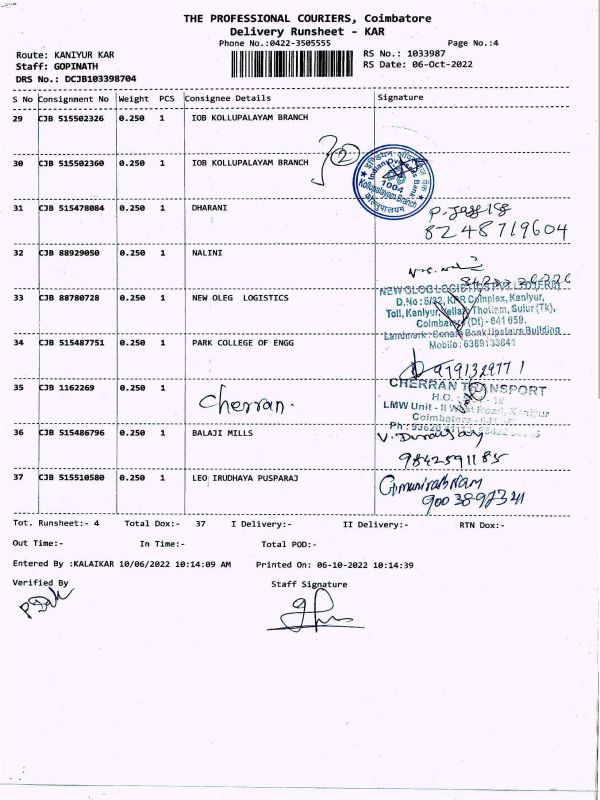 THE PROFESSIONAL COURIERS, Coimbatore
Delivery Runsheet - KAR
Phone No.:0422-3505555
Page No.:4
Route: KANIYUR KAR
RS No.: 1033987
Staff: GOPINATH
RS Date: 06-Oct-2022
DRS No.: DCJB103398704
S No Consignment No Weight PCS Consignee Details Signature
29 CJB 515502326 0.250 1 IOB KOLLUPALAYAM BRANCH
30 CJB 515502360 0.250 1 IOB KOLLUPALAYAM BRANCH
2
Indian Overseas Bank
1004
Kollupalayam Branch
31 CJB 515478084 0.250 1 DHARANI
8248719604
32 CJB 88929050 0.250 1 NALINI
33 CJB 88780728 0.250 1 NEW OLEG LOGISTICS
D.No: 6/32, KPR Complex, Kaniyur,
Thottam, Sulur (Tk),
Coimbatore (Dt) - 641 659.
Bank Upstairs Building
Mobile: 6369133841
34 CJB 515487751 0.250 1 PARK COLLEGE OF ENGG
35 CJB 1162269 0.250 1
Cherran.
CHERRAN TRANSPORT
H.O.
LMW Unit - II West Road, Kaniyur
36 CJB 515486796 0.250 1 BALAJI MILLS
9842591185
37 CJB 515510580 0.250 1 LEO IRUDHAYA PUSPARAJ
Tot. Runsheet:- 4 Total Dox:- 37 I Delivery:- II Delivery:- RTN Dox:-
Out Time:- In Time:- Total POD:-
Entered By :KALAIKAR 10/06/2022 10:14:09 AM Printed On: 06-10-2022 10:14:39
Verified By Staff Signature